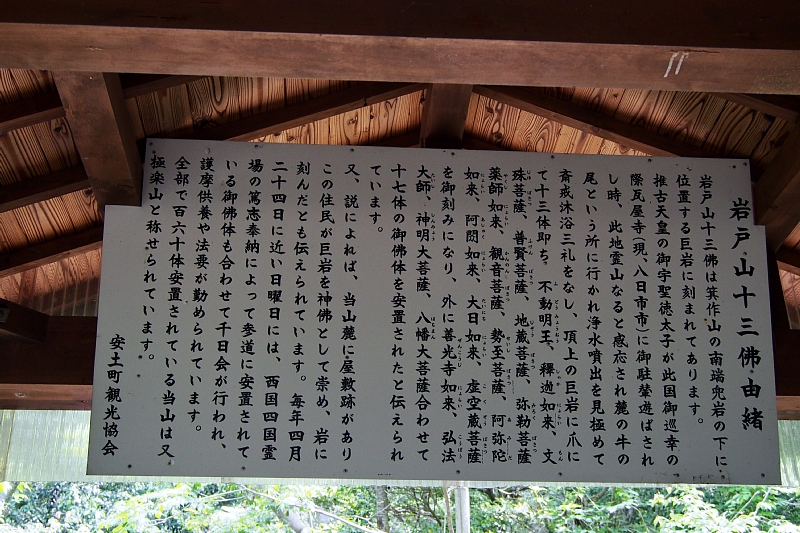 岩戸山十三佛由緒
岩戸山十三佛は箕作山の南端兜岩の下に
位置する巨岩に刻まれてあります。
推古天皇の御宇聖徳太子が此国御巡幸の
際瓦屋寺(現、八日市市)に御駐輦遊ばされ
し時、此地霊山なると感応され麓の牛の
尾という所に行かれ浄水噴出を見極めて
斎戒沐浴三礼をなし、頂上の巨岩に爪に
て十三体即ち、不動明王、釋迦如来、文
殊菩薩、普賢菩薩、地蔵菩薩、弥勒菩薩
薬師如来、観音菩薩、勢至菩薩、阿弥陀
如来、阿閦如来、大日如来、虚空蔵菩薩
を御刻みになり、外に善光寺如来、弘法
大師、神明大菩薩、八幡大菩薩合わせて
十七体の御佛体を安置されたと伝えられ
ています。
又、説によれば、当山麓に屋敷跡があり
この住民が巨岩を神佛として崇め、岩に
刻んだとも伝えられています。毎年四月
二十四日に近い日曜日には、西国四国霊
場の篤志奉納によって参道に安置されて
いる御佛体も合わせて千日会が行われ、
護摩供養や法要が勤められています。
全部で百六十体安置されている当山は又
極楽山と称せられています。
安土町観光協会